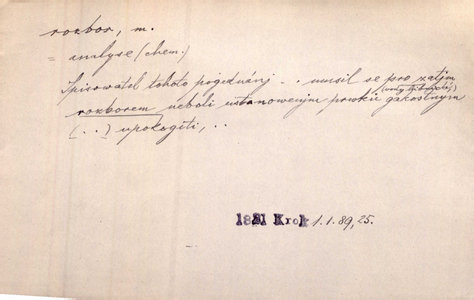 rozbor, m.
= analyse (chem.)
Spisowatel tohoto pogednánj .. musil se pro zatjm
(wody hibnické)
rozborem neboli ustanowenjm prwků gakostným
(..) upokogiti, ..
1821 Krok 1.1.89,25.